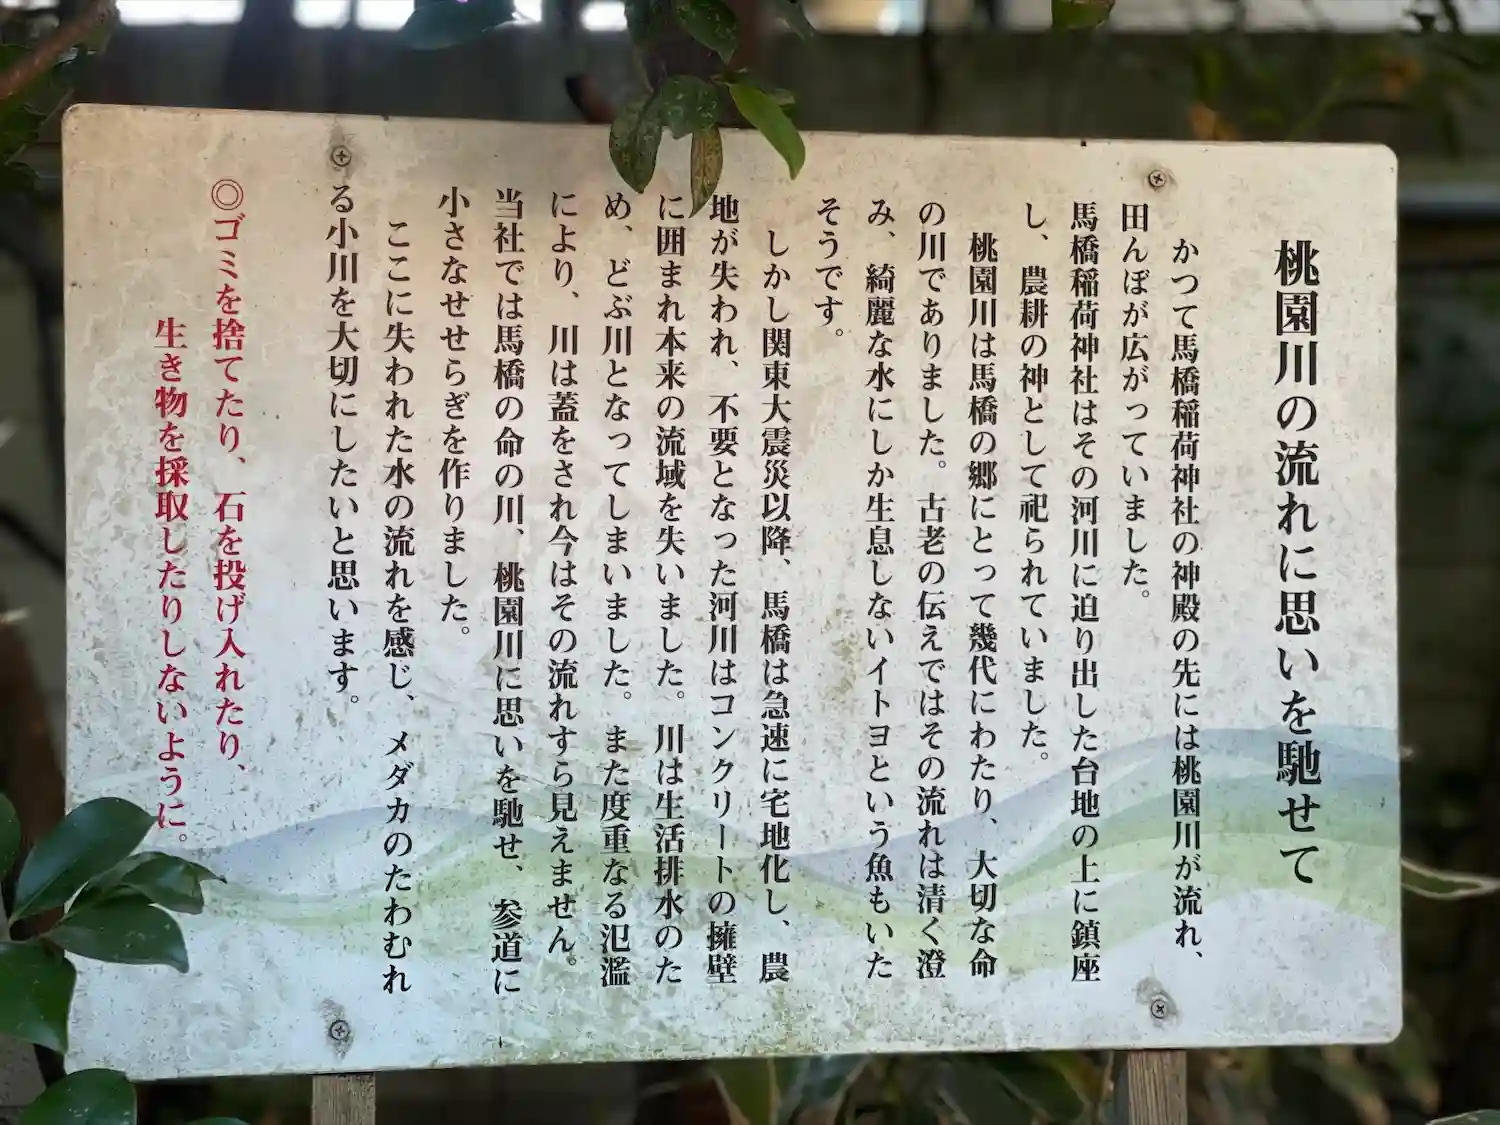 桃園川の流れに思いを馳せて
かつて馬橋稲荷神社の神殿の先には桃園川が流れ、
田んぼが広がっていました。
馬橋稲荷神社はその河川に迫り出した台地の上に鎮座
し、農耕の神として祀られていました。
桃園川は馬橋の郷にとって幾代にわたり、大切な命
の川でありました。古老の伝えではその流れは清く澄
み、綺麗な水にしか生息しないイトヨという魚もいた
そうです。
しかし関東大震災以降、馬橋は急速に宅地化し、農
地が失われ、不要となった河川はコンクリートの擁壁
に囲まれ本来の流域を失いました。川は生活排水のた
め、どぶ川となってしまいました。また度重なる氾濫
により、川は蓋をされ今はその流れすら見えません。
当社では馬橋の命の川、桃園川に思いを馳せ、参道に
小さなせせらぎを作りました。
ここに失われた水の流れを感じ、メダカのたわむれ
る小川を大切にしたいと思います。
◎ゴミを捨てたり、石を投げ入れたり、
生き物を採取したりしないように。